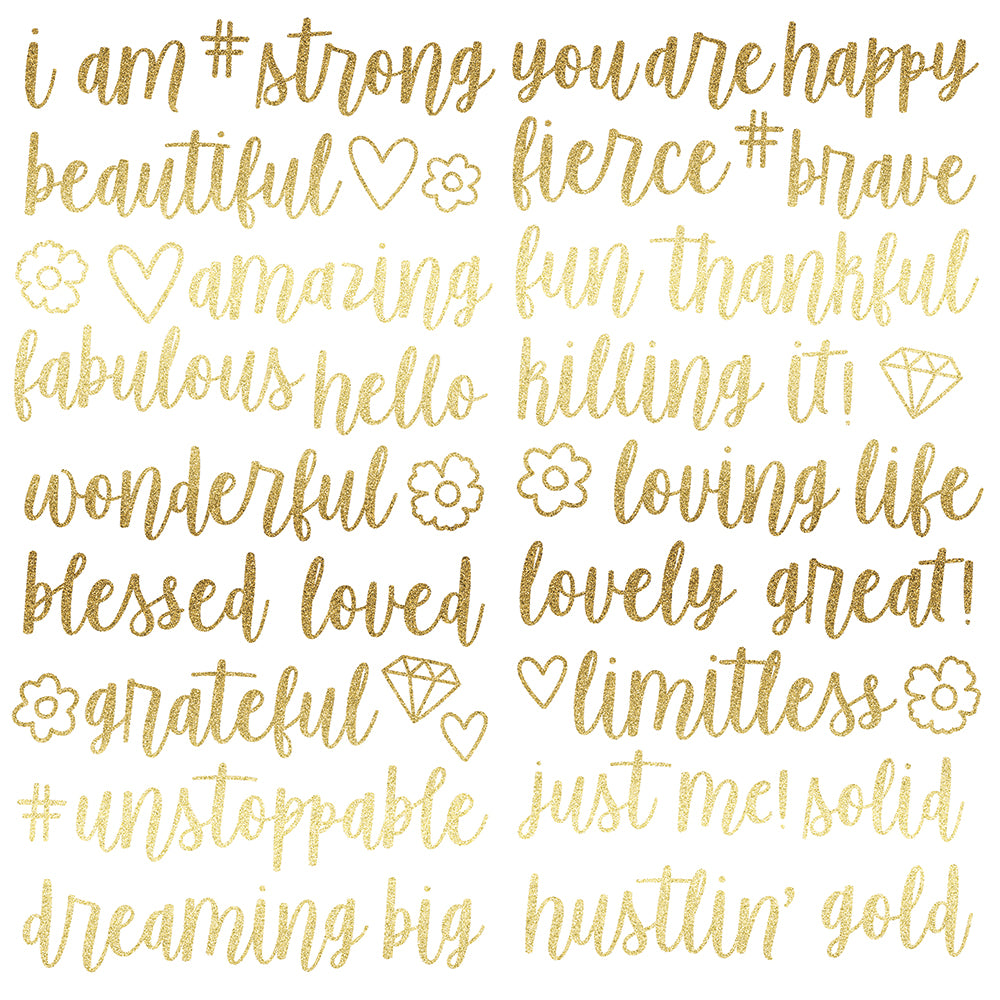 i am # strong
beautiful
amazing
fabulous hello
wonderful
blessed loved
grateful
# unstoppable
dreaming big
you are happy
fierce # brave
fun thankful
killing it!
loving life
lovely great!
limitless
just me! solid
hustlin' gold